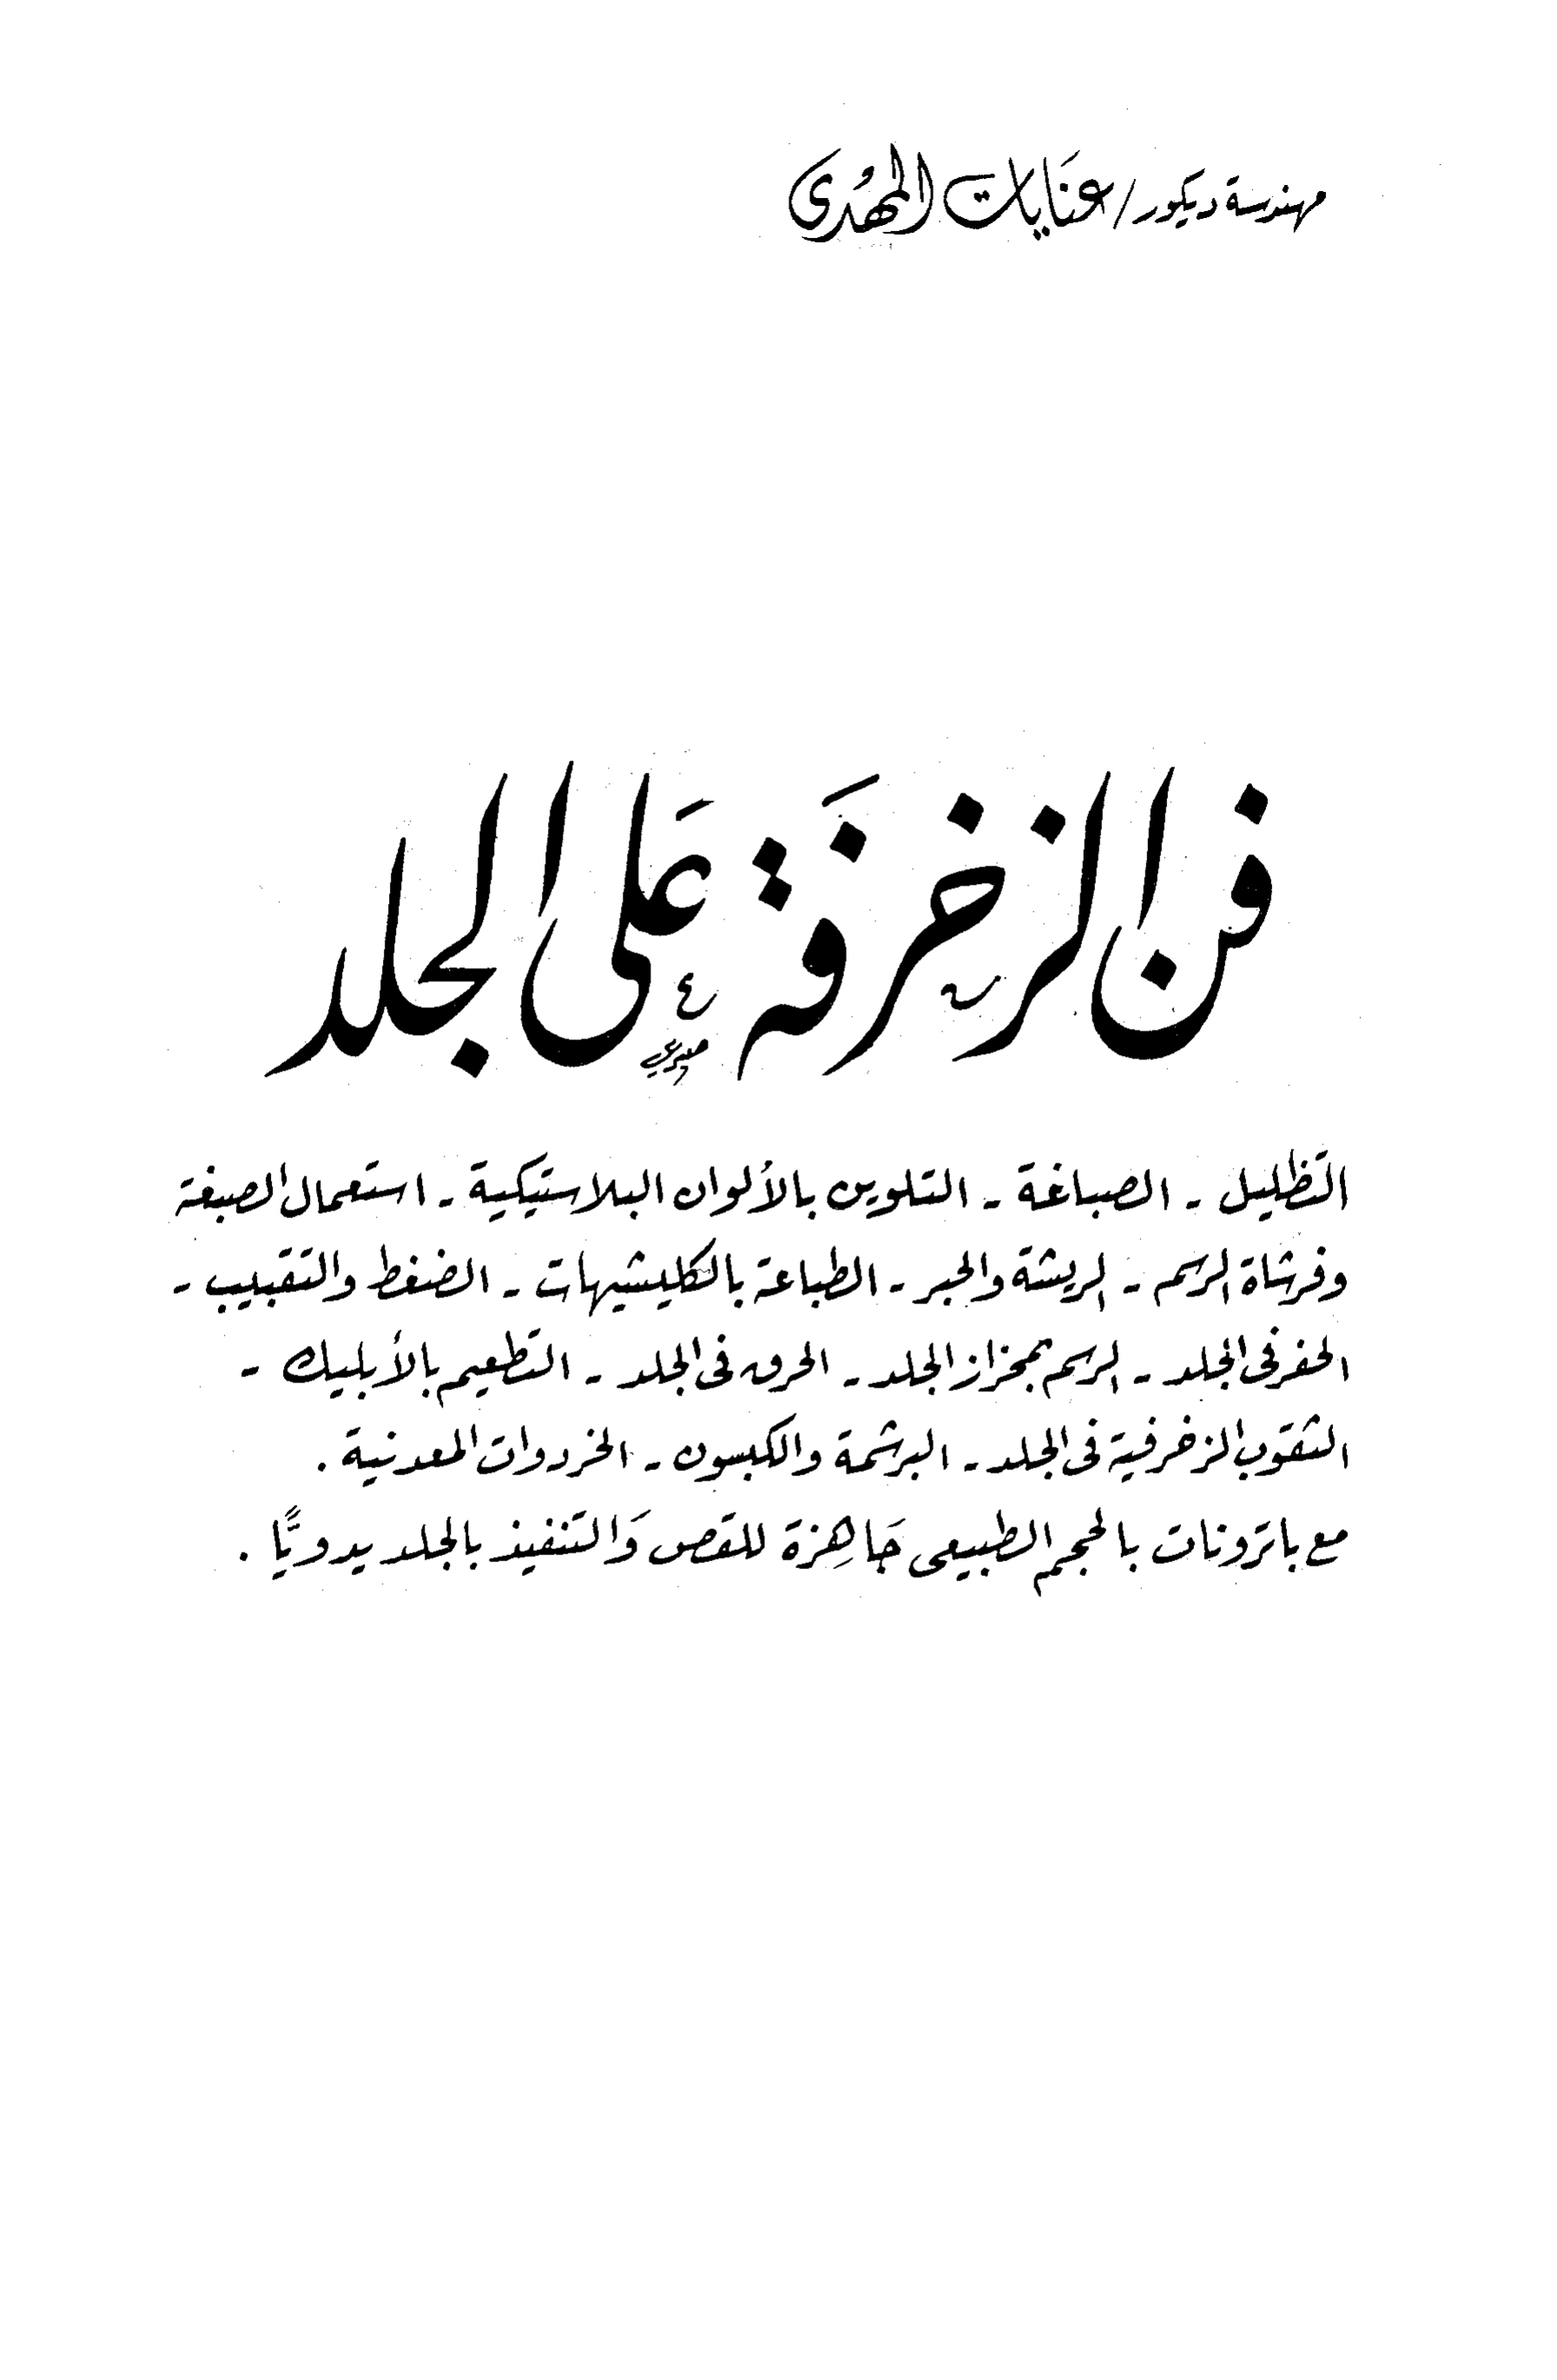 مهندسة ديكور / عنَايات المهُدى
فن الزخرفَة عَلى الجلد
التظليل - الصباغة - التلوين بالألوان البلاستيكية - استعمال الصبغة
وفرشاة الرسم - الريشة والحبر - الطباعة بالكليشيهات - الضغط والتقبيب -
الحفر فى الجلد - الرسم بمجزاز الجلد - الحرق فى الجلد - التطعيم بالأبليك -
الثقوب الزخرفية فى الجلد - البرشمة والكبسون - الخردوات المعدنية .
مع باترونات بالحجم الطبيعى جَاهِزة للقص وَالتنفيذ بالجلد يدويًّا .